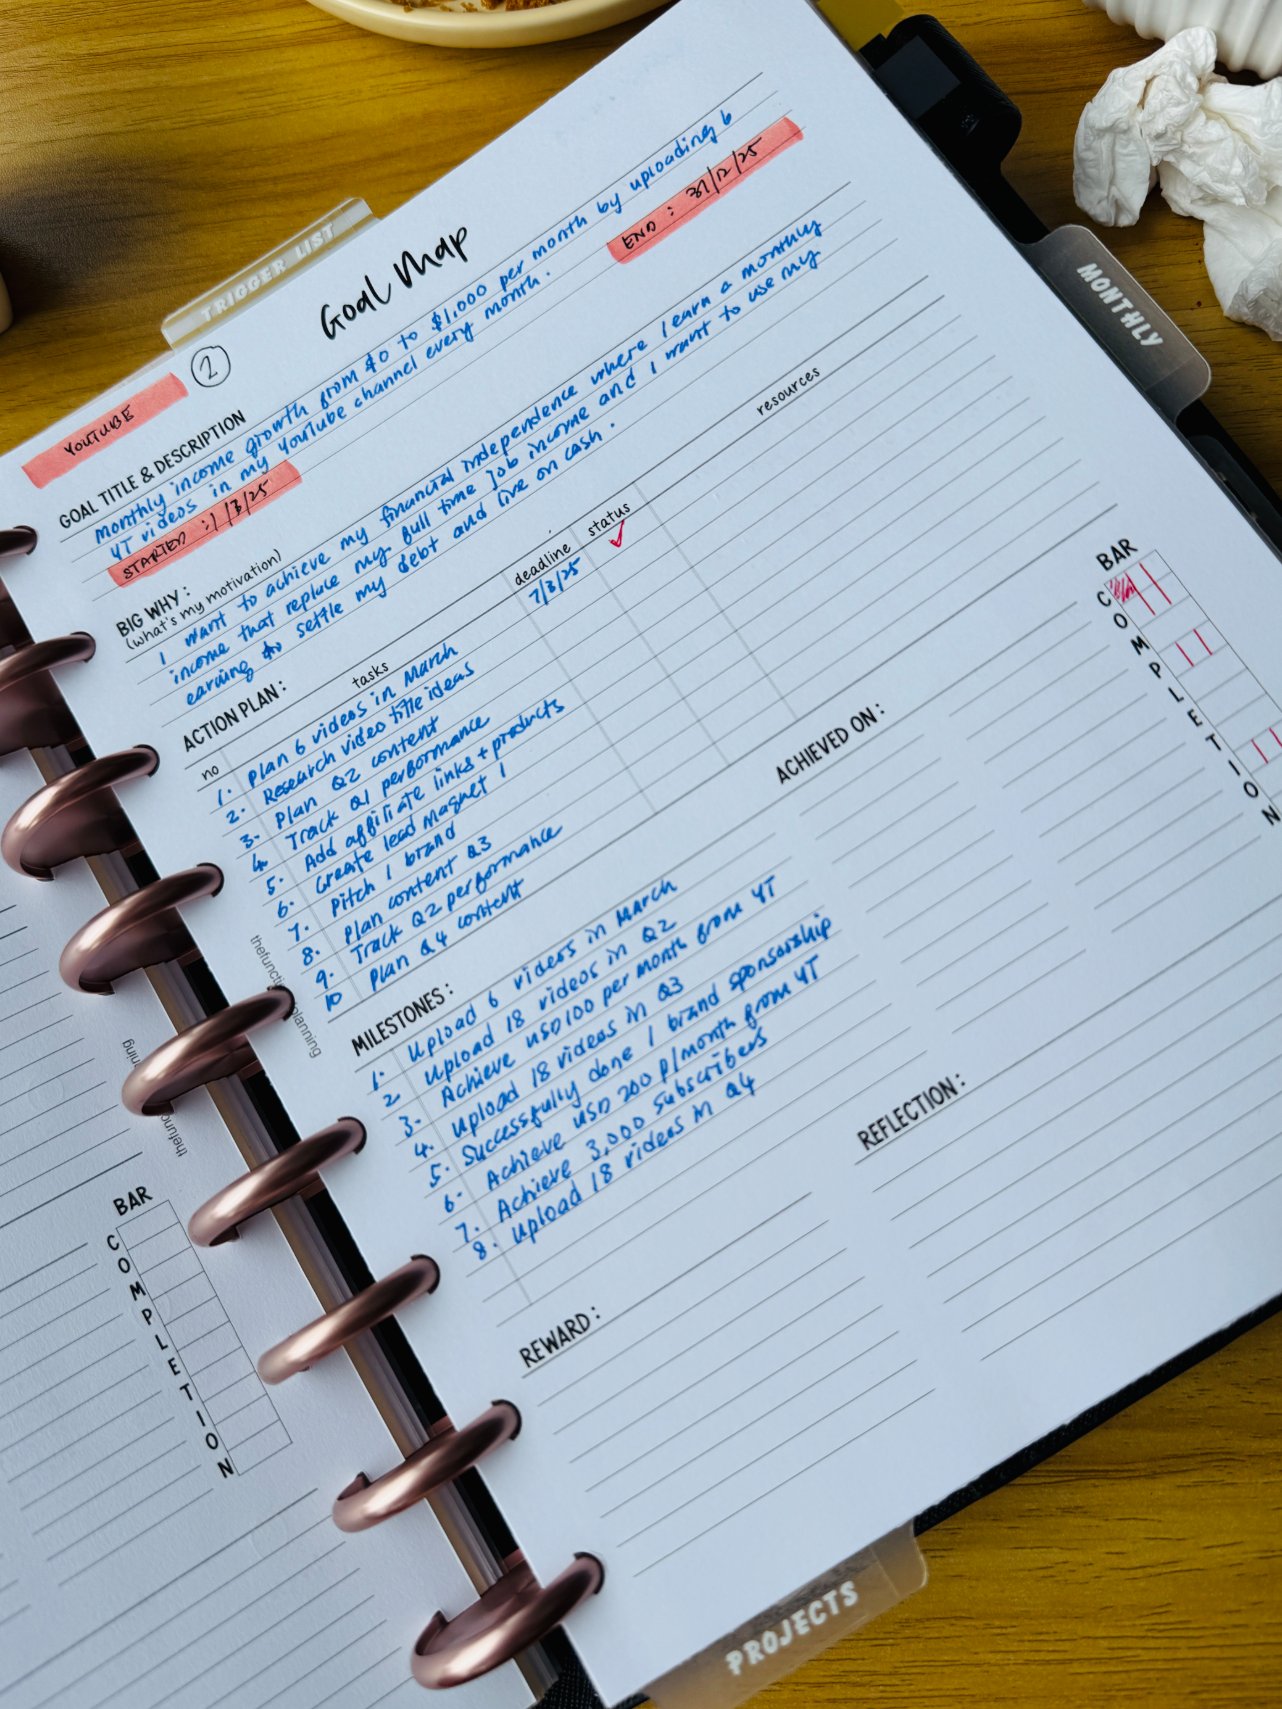 TRIGGER LIST
Goal Map
YOUTUBE
2
GOAL TITLE & DESCRIPTION
Monthly income growth from $0 to $1,000 per month by uploading 6
YT videos in my YouTube channel every month.
STARTED : 1/3/25
END : 31/12/25
BIG WHY:
(what's my motivation)
I want to achieve my financial independence where I earn a monthly
income that replace my full time job income and I want to use my
earning to settle my debt and live on cash.
ACTION PLAN:
no tasks deadline status resources
1. Plan 6 videos in March 7/3/25 ✓
2. Research video title ideas
3. Plan Q2 content
4. Track Q1 performance
5. Add affiliate links + products
6. Create lead magnet 1
7. Pitch 1 brand
8. Plan content Q3
9. Track Q2 performance
10 Plan Q4 content
MILESTONES:
ACHIEVED ON:
1. Upload 6 videos in March
2 Upload 18 videos in Q2
3. Achieve USD100 per month from YT
4. Upload 18 videos in Q3
5. Successfully done 1 brand sponsorship
6. Achieve USD 200 p/month from YT
7. Achieve 3,000 subscribers
8. Upload 18 videos in Q4
REWARD:
REFLECTION:
BAR
COMPLETION
MONTHLY
PROJECTS
BAR
COMPLETION